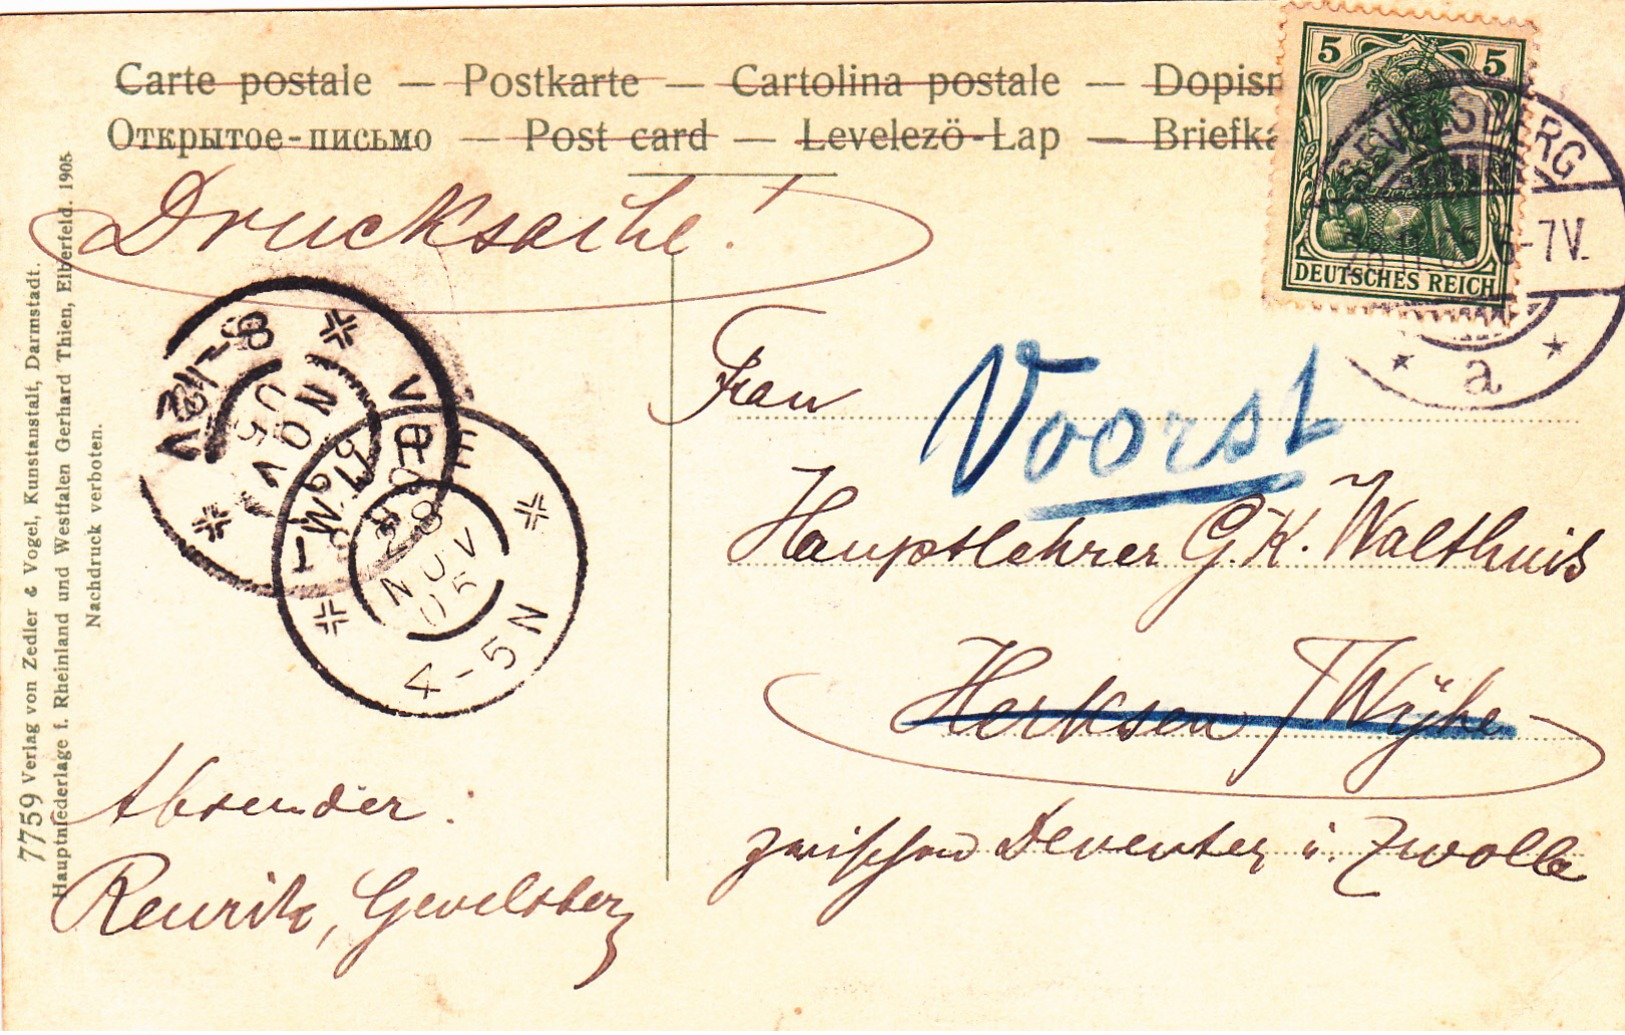 Carte postale — Postkarte — Cartolina postale — Dopisn
Открытое-письмо — Post card — Levelező-Lap — Briefka
Drucksache!
5 5
DEUTSCHES REICH
GEVELSBERG
6-7V.
a
Frau
Voorst
Hauptlehrer G. K. Walthuis
Herksen / Wijhe
zwischen Deventer u. Zwolle
8-12V
NOV
05
28
NOV
05
4-5N
Absender:
Gevelsberg
7759 Verlag von Zedler & Vogel, Kunstanstalt, Darmstadt.
Hauptniederlage f. Rheinland und Westfalen Gerhard Thien, Elberfeld. 1905
Nachdruck verboten.